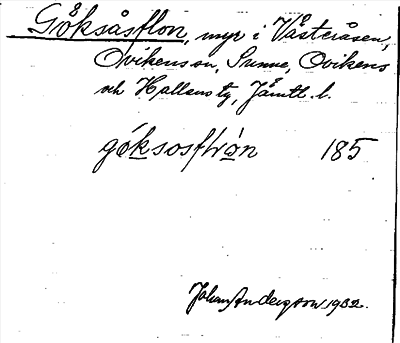 Göksåsflon, myr i Västeråsen,
Ovikens sn, Sunne, Ovikens
och Hallens tg, Jämtl. l.
göksosflrån 185
Johan Anderzon 1932.